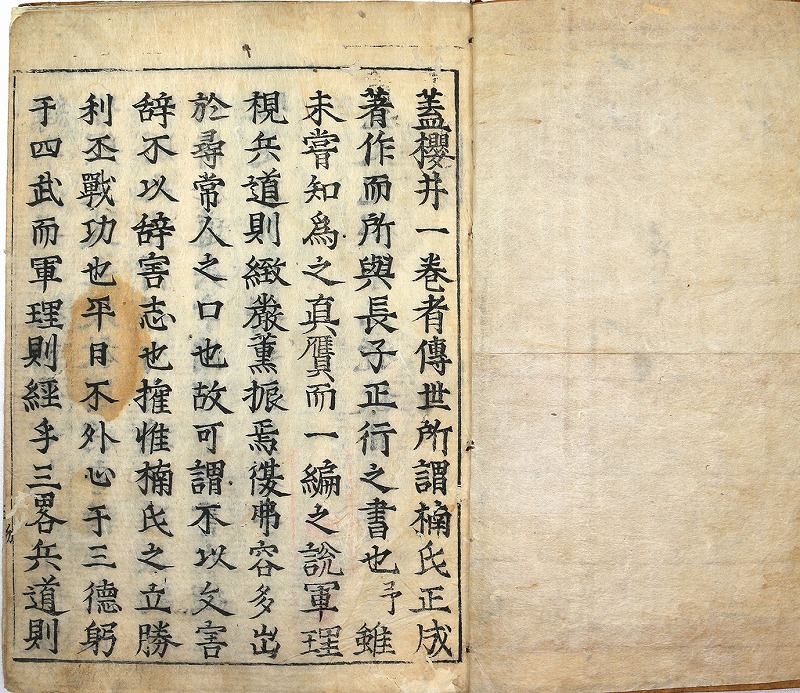 蓋櫻井一巻者傳世所謂楠氏正成
著作而所與長子正行之書也予雖
未嘗知爲之真贋而一編之說軍理
視兵道則緻嚴薰振焉弗容多出
於尋常人之口也故可謂不以文害
辞不以辞害志也搉惟楠氏之立勝
利丕戰功也平日不外心于三德躬
于四武而軍理則經乎三畧兵道則